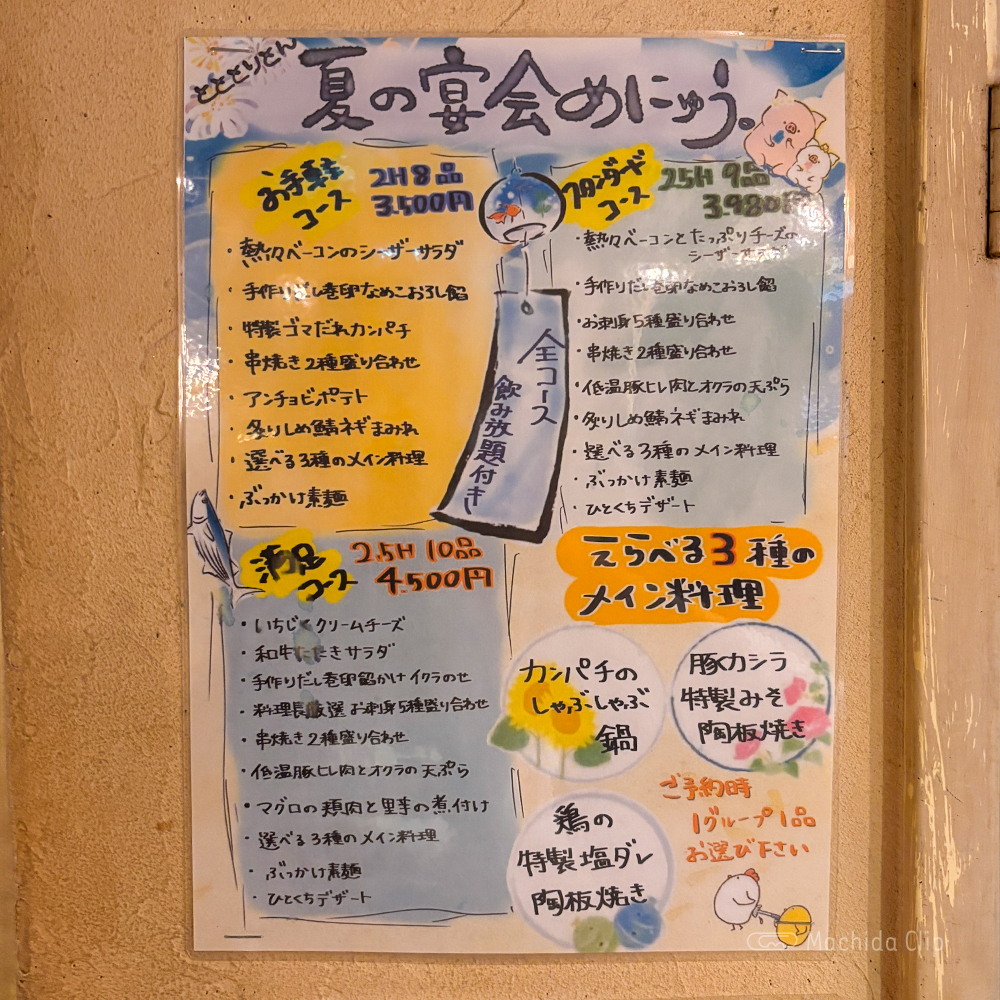 とととりとん
夏の宴会めにゅう。
お手軽
コース
2H 8品
3.500円
・熱々ベーコンのシーザーサラダ
・手作りだし巻卵なめこおろし餡
・特製ゴマだれカンパチ
・串焼き2種盛り合わせ
・アンチョビポテト
・炙りしめ鯖ネギまみれ
・選べる3種のメイン料理
・ぶっかけ素麺
スタンダード
コース
2.5H 9品
3.980円
・熱々ベーコンとたっぷりチーズの
シーザーサラダ
・手作りだし巻卵なめこおろし餡
・お刺身5種盛り合わせ
・串焼き2種盛り合わせ
・低温豚ヒレ肉とオクラの天ぷら
・炙りしめ鯖ネギまみれ
・選べる3種のメイン料理
・ぶっかけ素麺
・ひとくちデザート
全コース
飲み放題付き
満足
コース
2.5H 10品
4.500円
・いちじくクリームチーズ
・和牛たたきサラダ
・手作りだし巻卵餡かけイクラのせ
・料理長厳選お刺身5種盛り合わせ
・串焼き2種盛り合わせ
・低温豚ヒレ肉とオクラの天ぷら
・マグロの頬肉と里芋の煮付け
・選べる3種のメイン料理
・ぶっかけ素麺
・ひとくちデザート
えらべる3種の
メイン料理
カンパチの
しゃぶしゃぶ
鍋
豚カシラ
特製みそ
陶板焼き
鶏の
特製塩ダレ
陶板焼き
ご予約時
1グループ1品
お選び下さい
Machida Clip